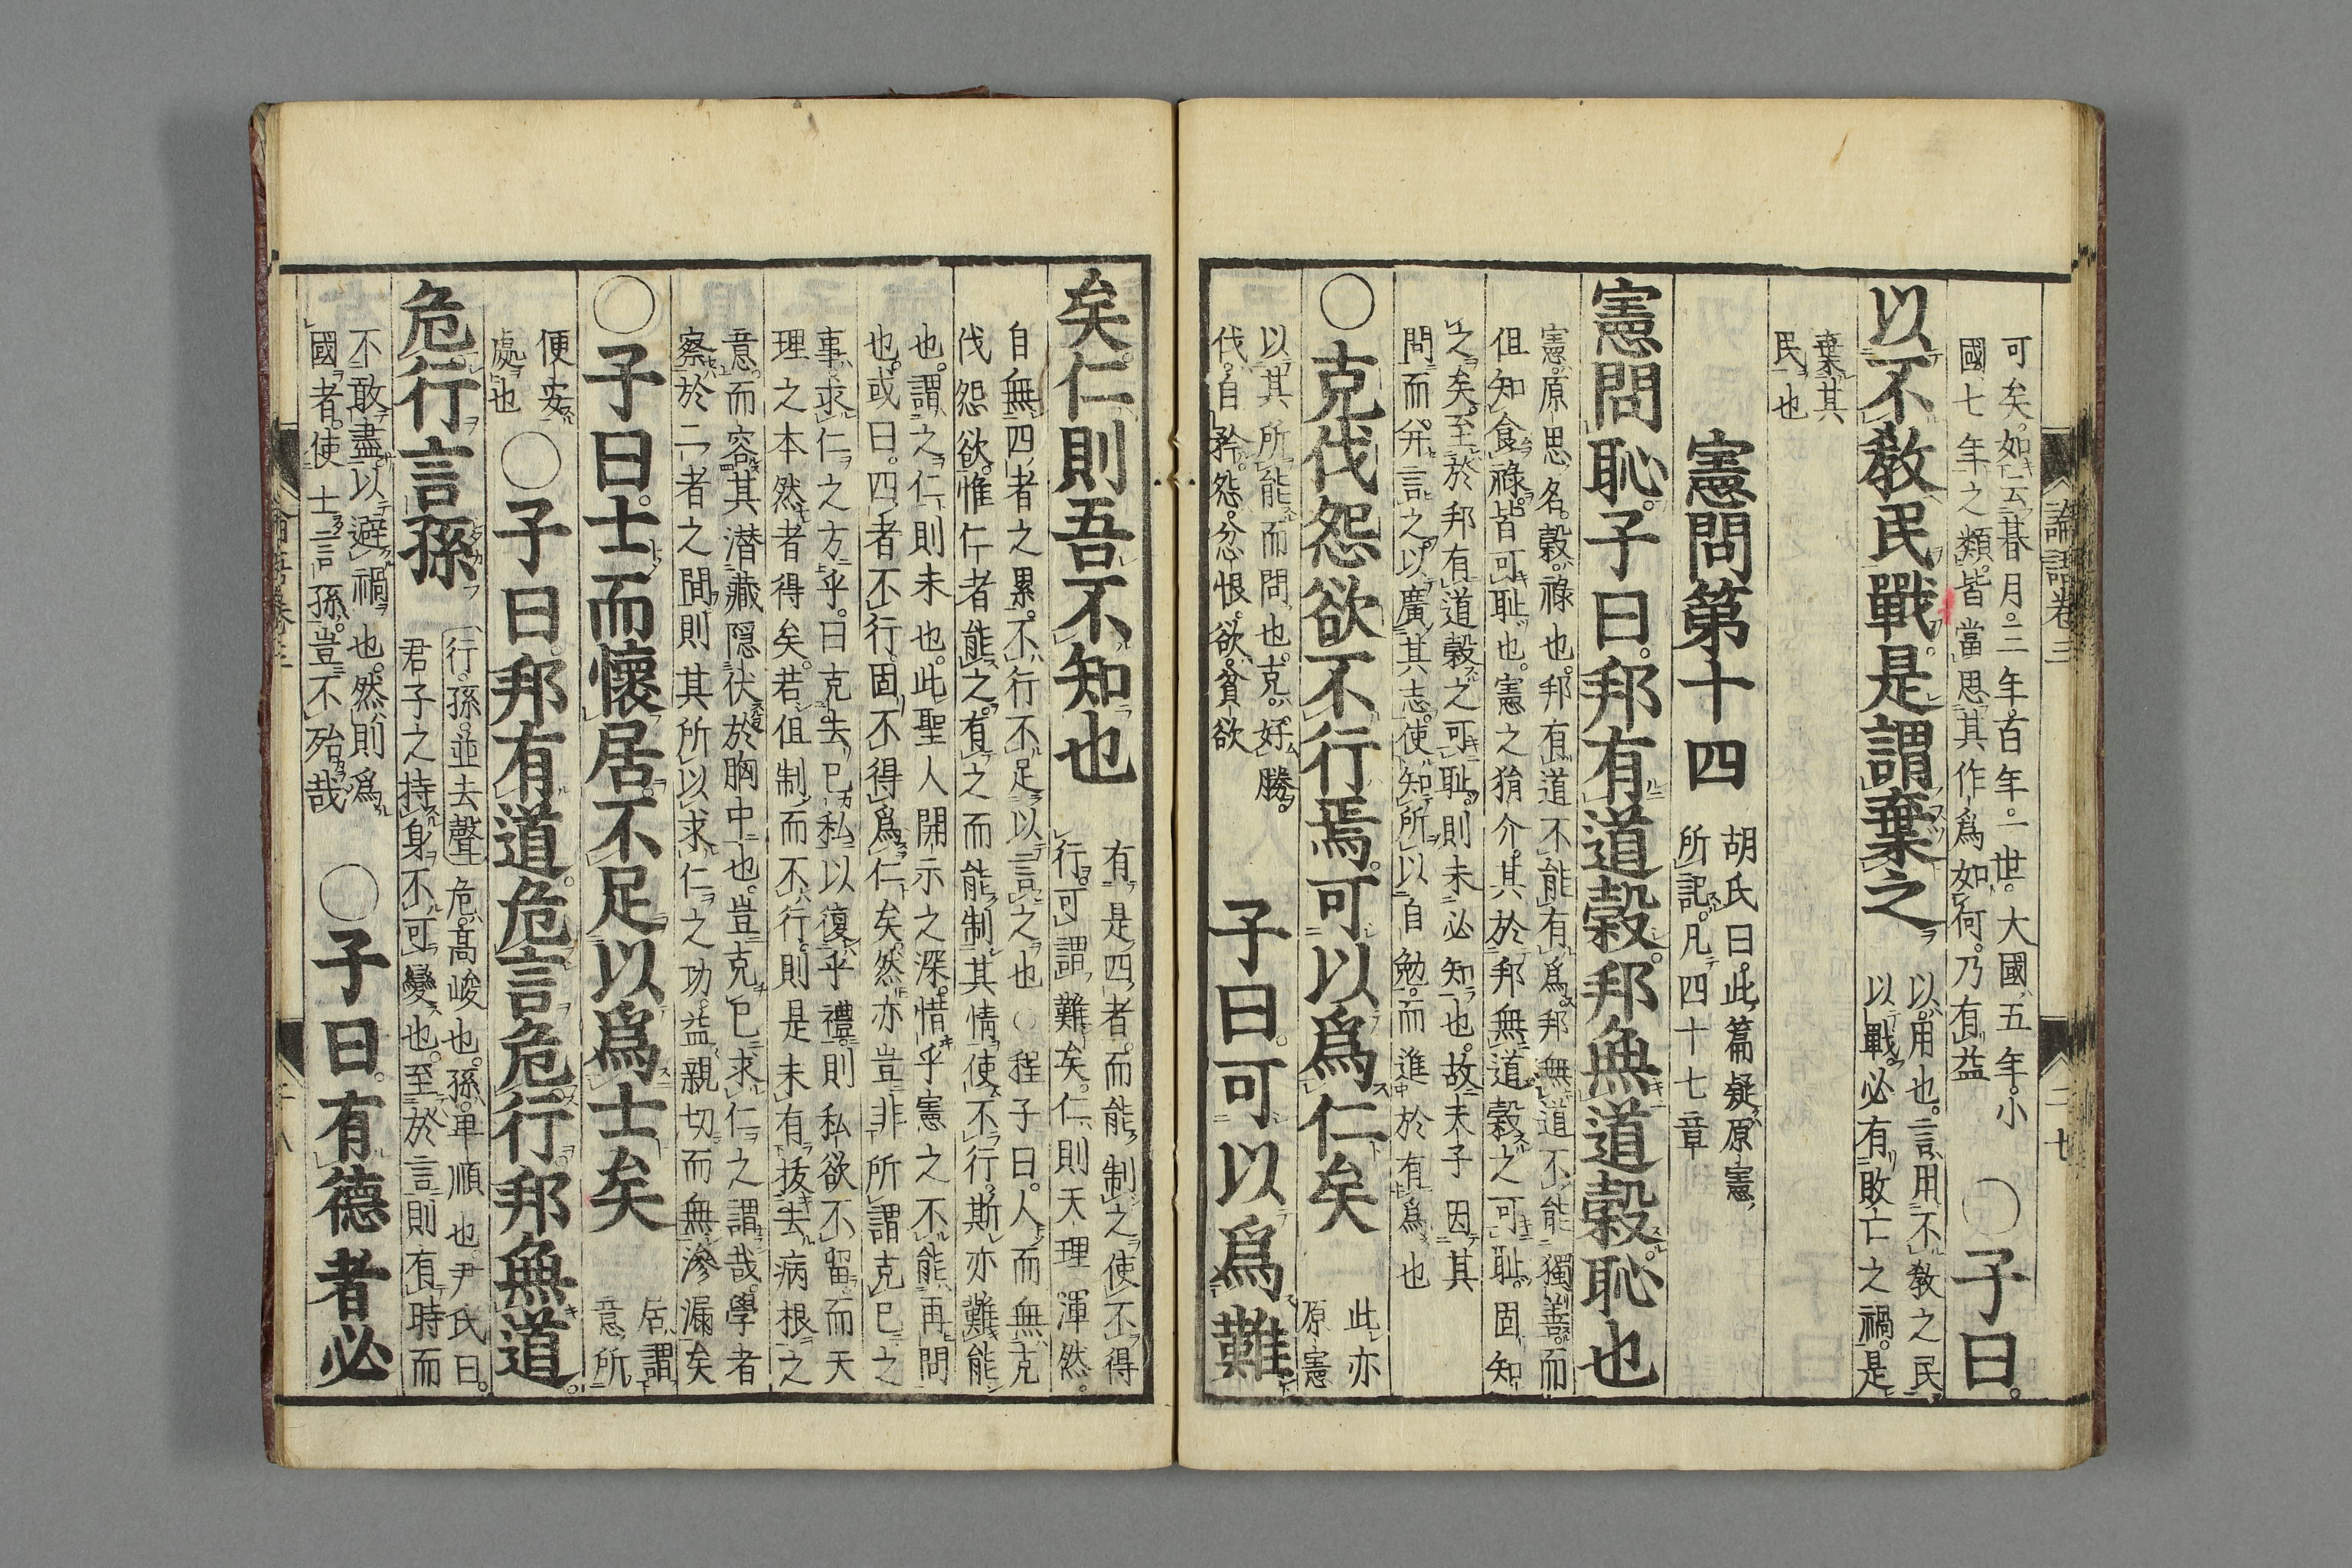 可矣。如云朞月。三年百年。一世。大國五年。小
國七年之類。皆當思其作爲如何。乃有益
○子曰。
以不教民戰。是謂棄之
以。用也。言用不教之民
以戰。必有敗亡之禍。是
棄其
民也
憲問第十四
胡氏曰。此篇疑原憲
所記。凡四十七章
憲問恥。子曰。邦有道穀。邦無道穀恥也
憲。原思名。穀。祿也。邦有道不能有爲。邦無道不能獨善。而
但知食祿。皆可恥也。憲之狷介。其於邦無道穀之可恥。固知
之矣。至於邦有道穀之可恥。則未必知也。故夫子因其
問而幷言之以廣其志。使知所以自勉。而進於有爲也
○克伐怨欲不行焉。可以爲仁矣
此亦
原憲
以其所能而問也。克。好勝。
伐。自矜。怨。忿恨。欲。貪欲
子曰。可以爲難
矣仁則吾不知也
有是四者。而能制之使不得
行。可謂難矣。仁則天理渾然。
自無四者之累。不行不足以言之也○程子曰。人而無克
伐怨欲。惟仁者能之。有之而能制其情使不行。斯亦難能
也。謂之仁則未也。此聖人開示之深。惜乎憲之不能再問
也。或曰。四者不行。固不得爲仁矣。然亦豈非所謂克己之
事。求仁之方乎。曰克去己私以復乎禮。則私欲不留。而天
理之本然者得矣。若但制而不行。則是未有拔去病根之
意。而容其潜藏隠伏於胸中也。豈克己求仁之謂哉。學者
察於二者之間。則其所以求仁之功。益親切而無滲漏矣
○子曰。士而懷居。不足以爲士矣
居謂
意所
便安
處也
○子曰。邦有道。危言危行。邦無道。
危行言孫
行。孫。並去聲
危。高峻也。孫。卑順也。尹氏曰。
君子之持身不可變也。至於言則有時而
不敢盡。以避禍也。然則爲
國者。使士言孫。豈不殆哉
○子曰。有德者必
論語卷三
二七